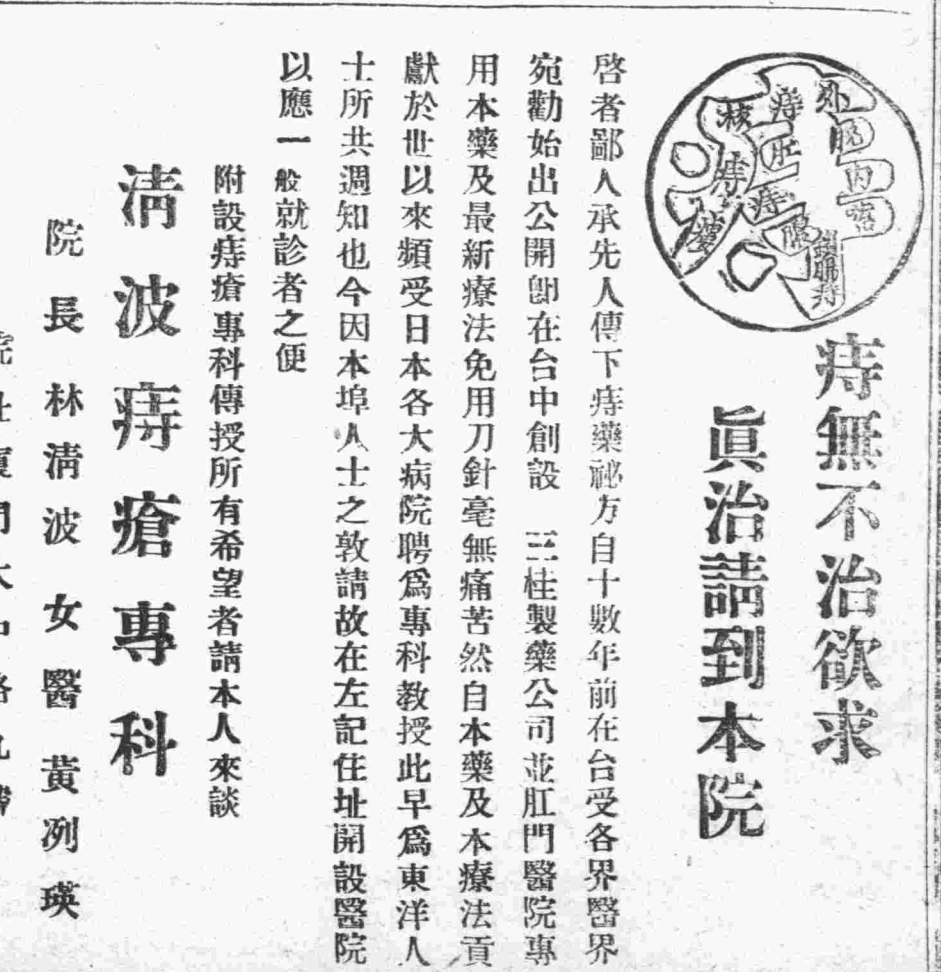 痔無不治欲求
眞治請到本院
啓者鄙人承先人傳下痔藥祕方自十數年前在台受各界醫界
宛勸始出公開卽在台中創設 三桂製藥公司並肛門醫院專
用本藥及最新療法免用刀針毫無痛苦然自本藥及本療法貢
獻於世以來頻受日本各大病院聘爲專科教授此早爲東洋人
士所共週知也今因本埠人士之敦請故在左記住址開設醫院
以應一般就診者之便
附設痔瘡專科傳授所有希望者請本人來談
淸波痔瘡專科
院長林淸波 女醫黃列瑛